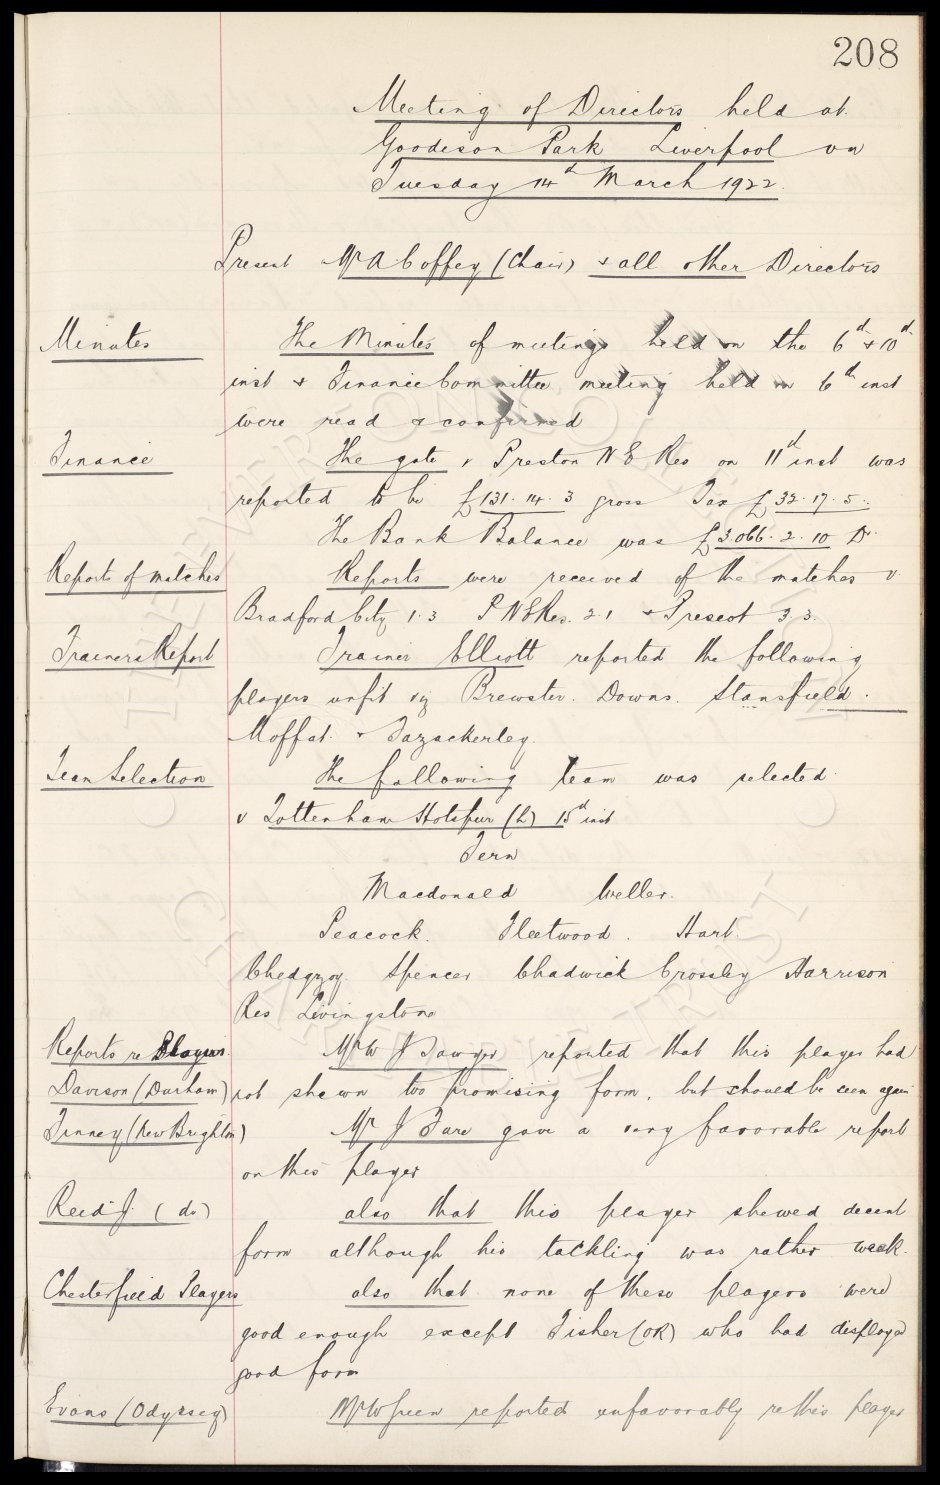 208
Meeting of Directors held at
Goodison Park Liverpool on
Tuesday 14th March 1922.
Present Mr A Coffey (Chair) & all other Directors
Minutes The Minutes of meetings held on the 6th & 10th
inst & Finance Committee meeting held on 6th inst
were read & confirmed
Finance The gate v Preston N E Res on 11th inst was
reported to be £131.14.3 gross Tax £32.17.5.
The Bank Balance was £3.066.2.10 Dr.
Reports of matches Reports were received of the matches v
Bradford City 1.3 P N E Res. 2.1 & Prescot 3.3.
Trainers Report Trainer Elliott reported the following
players unfit viz Brewster. Downs. Stansfield.
Moffat. & Fazackerley.
Team Selection The following team was selected
v Tottenham Hotspur (h) 15th inst
Fern
Macdonald Weller.
Peacock. Fleetwood. Hart.
Chedgzoy. Spencer Chadwick Crossley Harrison
Res Livingstone
Reports re Players. Mr W J Sawyer reported that this player had
Davison (Durham) not shewn too promising form, but should be seen again
Finney (New Brighton) Mr J Fare gave a very favorable report
on this player
Reid J. (do) also that this player shewed decent
form although his tackling was rather weak.
Chesterfield Players also that none of these players were
good enough except Fisher (OR) who had displayed
good form
Evans (Odyssey) Mr W Green reported unfavorably re this player